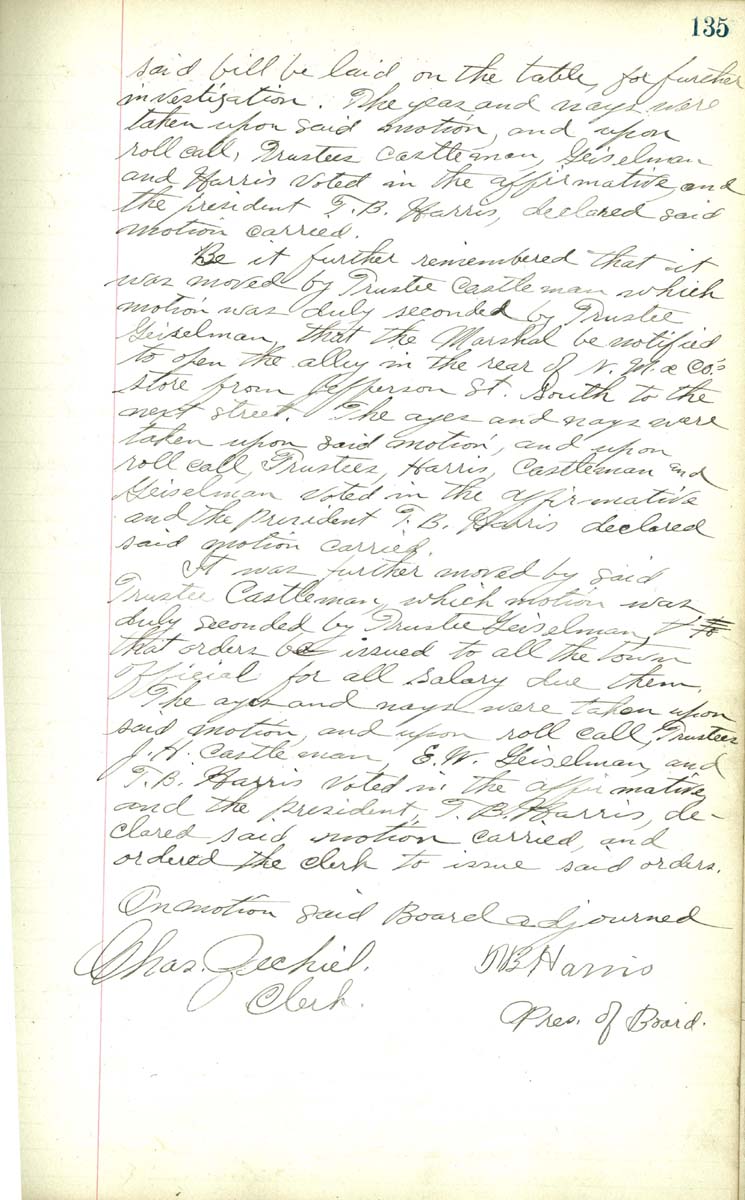 135
said bill be laid on the table, for further
investigation. The yeas and nays were
taken upon said motion, and upon
roll call, Trustees Castleman, Geiselman
and Harris voted in the affirmative, and
the president T. B. Harris, declared said
motion carried.
Be it further remembered that it
was moved by Trustee Castleman which
motion was duly seconded by Trustee
Geiselman, that the Marshal be notified
to open the alley in the rear of V. M. & Co's
store from Jefferson St. South to the
next street. The ayes and nays were
taken upon said motion, and upon
roll call, Trustees, Harris, Castleman and
Geiselman voted in the affirmative
and the President T. B. Harris declared
said motion carried.
It was further moved by said
Trustee Castleman, which motion was
duly seconded by Trustee Geiselman,
that orders be issued to all the town
official for all salary due them.
The ayes and nays were taken upon
said motion, and upon roll call, Trustees
J. H. Castleman, E. W. Geiselman, and
T. B. Harris voted in the affirmative,
and the president, T. B. Harris, de-
clared said motion carried, and
ordered the clerk to issue said orders.
On motion said Board adjourned
Chas. Zechiel. T B Harris
Clerk.
Pres. of Board.